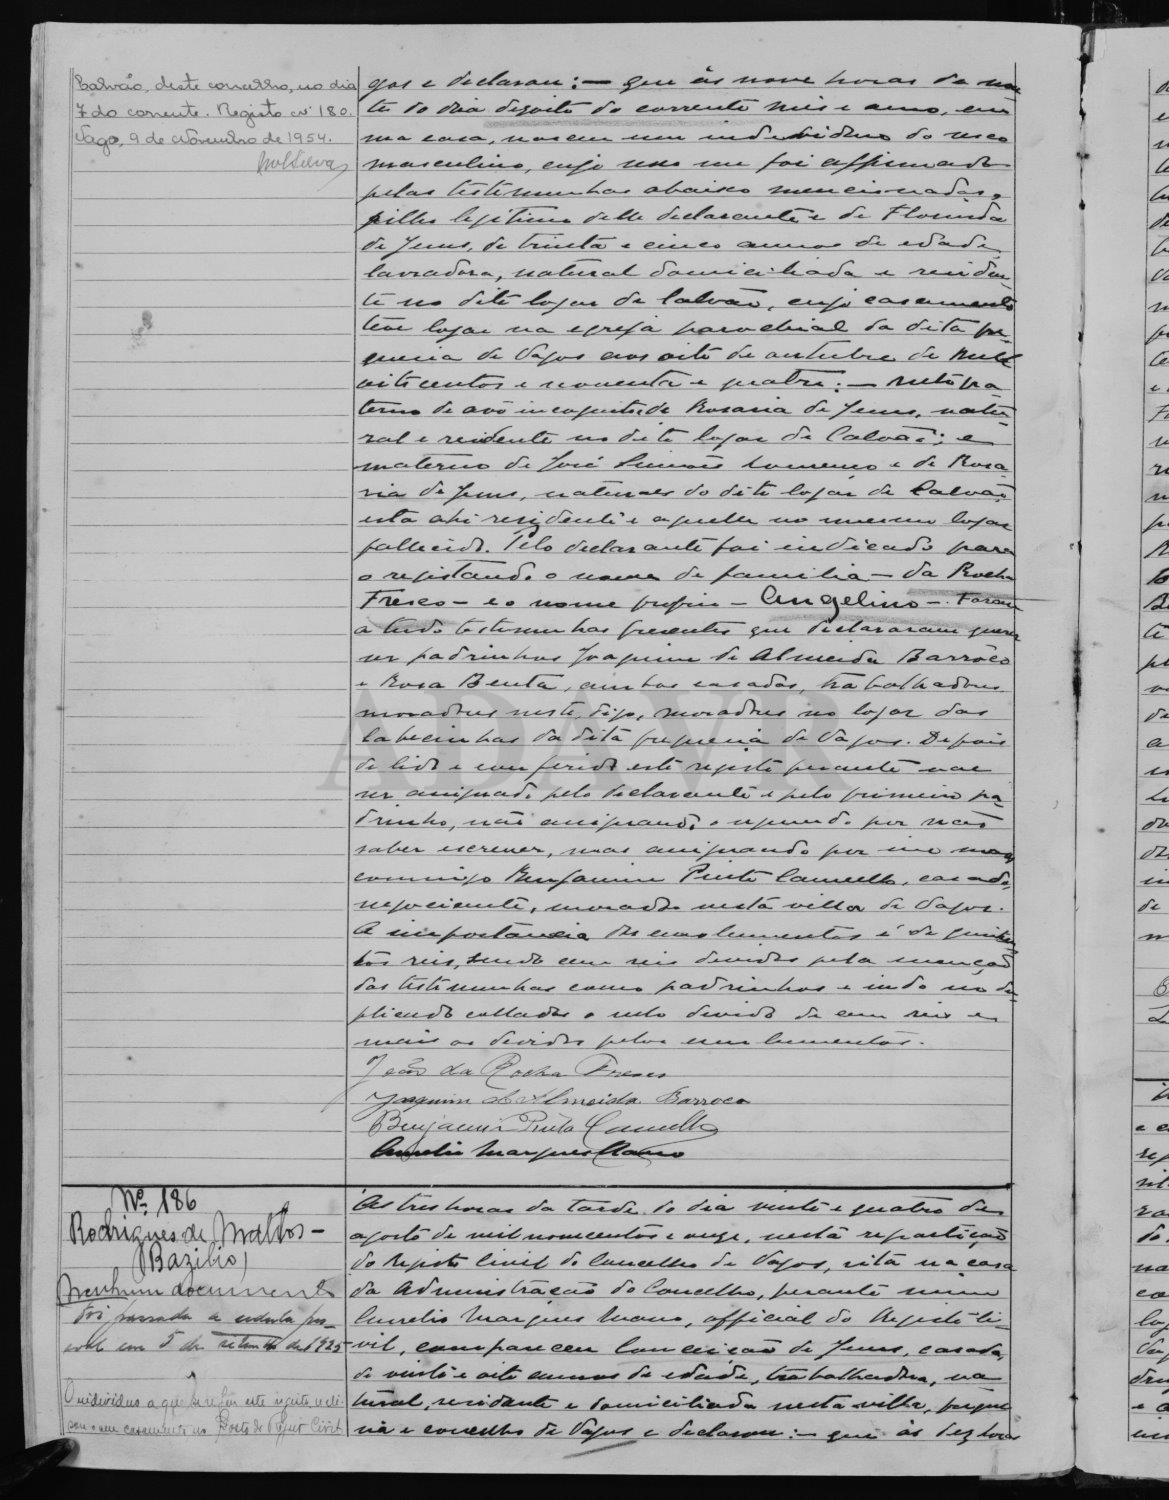 Calvão, deste concelho, no dia
7 do corrente. Registo nº 180.
Vagos, 9 de Novembro de 1954.
gos e declarou: — que ás nove horas da noi
te do dia dezoito do corrente mês e anno, em
sua casa, nasceu um individuo do sexo
masculino, cujo sexo me foi affirmado
pelas testemunhas abaixo mencionadas,
filho legitimo delle declarante e de Florinda
de Jesus, de trinta e cinco annos de edade,
lavradora, natural domiciliada e residen-
te no dito logar de Calvão, cujo casamento
teve logar na egreja parochial da dita fre-
guezia de Vagos aos oito de outubro de mil
oitocentos e noventa e quatro: — neto pa
terno de avô incognito e de Rosaria de Jesus, natu-
ral e residente no dito logar de Calvão; e
materno de José Simões Lourenço e de Rosa
ria de Jesus, naturaes do dito logar de Calvão
esta ahi residente e aquelle no mesmo logar
fallecido. Pelo declarante foi indicado para
o registando o nome de familia — da Rocha
Fresco — e o nome proprio — Angelino —. Foram
a tudo testemunhas presentes que declararam querer
ser padrinhos Joaquim de Almeida Barrôco
e Rosa Benta, ambos casados, trabalhadores
moradores neste, digo, moradores no logar das
da dita freguezia de Vagos. Depois
de lido e conferido este registo perante vae
ser assignado pelo declarante e pelo primeiro pa-
drinho, não assignando o segundo por não
saber escrever, mas assignando por
commigo Benjamim Pinto Camello, casado,
negociante, morador nesta villa de Vagos.
A importancia dos emolumentos é de quinhen
tos reis, sendo cem reis devidos pela menção
das testemunhas como padrinhos e indo no du-
plicado collado o sello devido de cem reis e
mais os devidos pelos emolumentos.
João da Rocha Fresco
Joaquim de Almeida Barroco
Benjamim Pinto Camello
Aurelio Marques Mano
Nº 186
Rodrigues de Mattos —
(Bazilio)
Nenhum documento
Foi passada a cedula pes-
soal em 5 de setembro de 1925
O individuo a que se refere este registo, reali-
sou o seu casamento no Posto do Regisº Civil
Ás tres horas da tarde do dia vinte e quatro de
agosto de mil novecentos e onze, nesta repartição
do Registo Civil do Concelho de Vagos, sita na casa
da Administração do Concelho, perante mim
Aurelio Marques Mano, official do Registo Ci-
vil, compareceu Conceição de Jesus, casada,
de vinte e oito annos de edade, trabalhadora, na
tural, residente e domiciliada nesta villa, fregue
zia e concelho de Vagos e declarou: — que ás dez horas
ADAVR